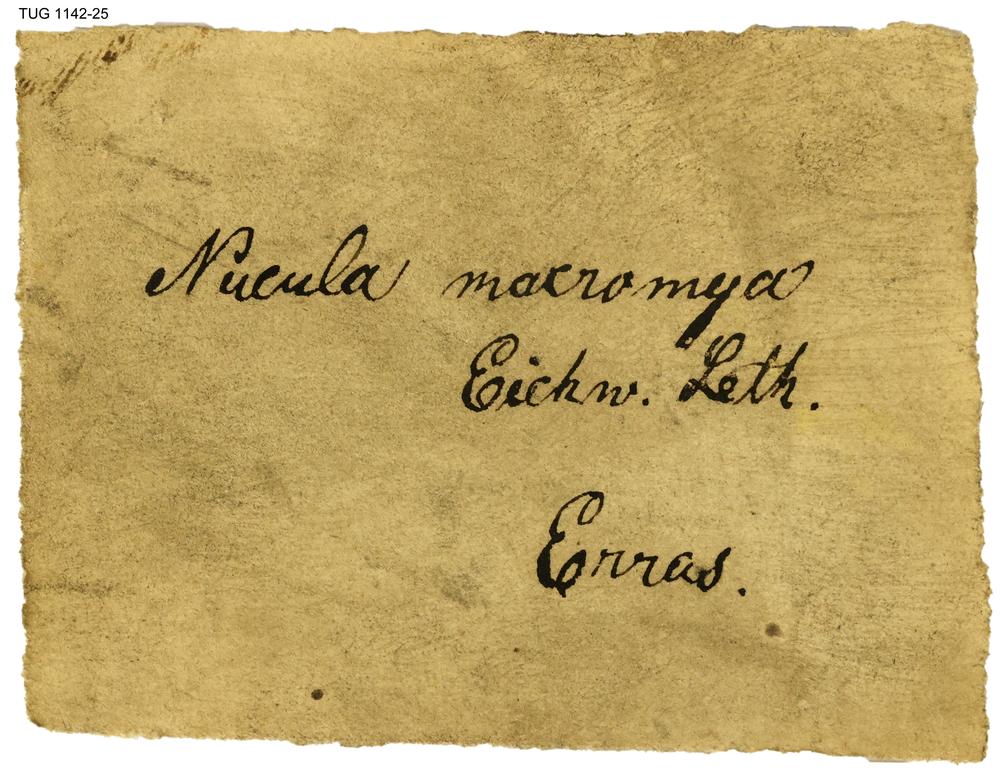 TUG 1142-25
Nucula macromya
Eichw. Leth.
Erras.